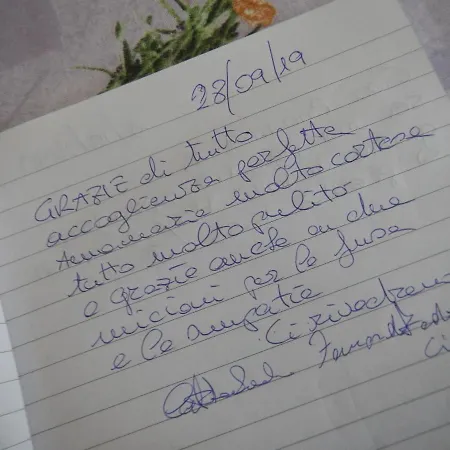 28/09/19
GRAZIE di tutto
accoglienza perfetta
Annamaria molto cortese
tutto molto pulito
e grazie anche ai due
micioni per le fusa
e la simpatia
Ci rivedremo
Ci